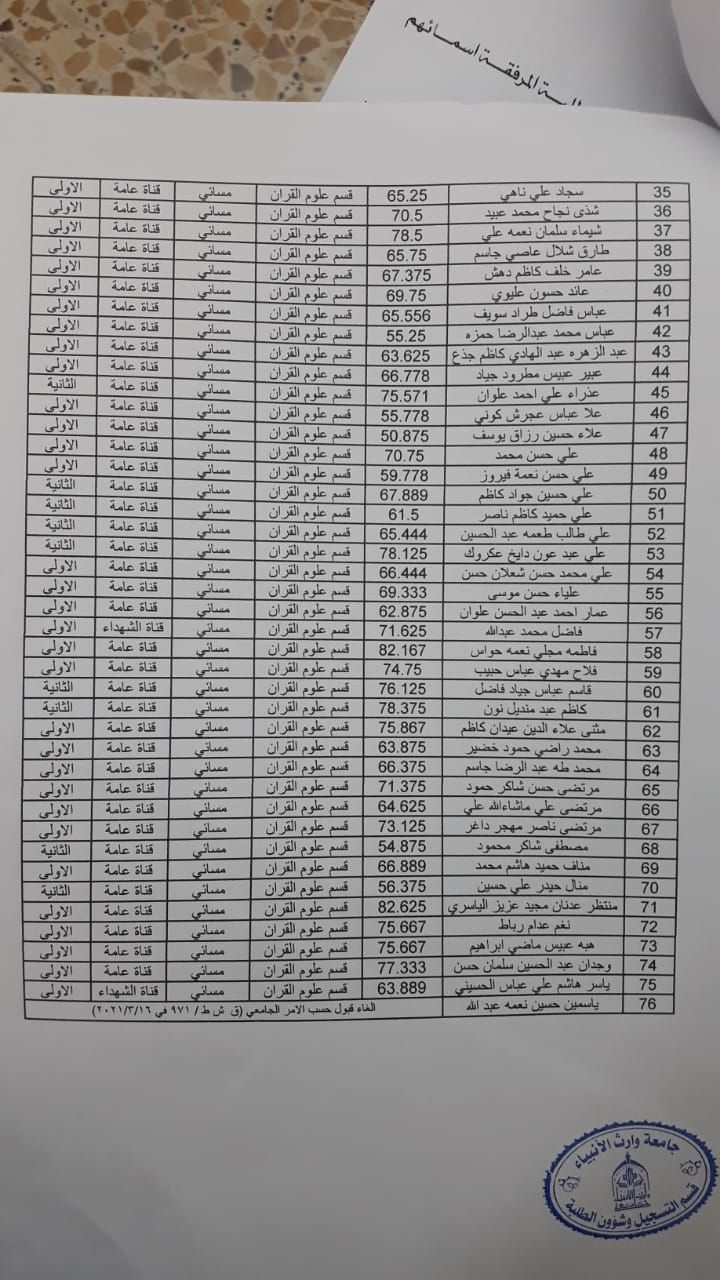 الية المرفقة اسمائهم
35 سجاد علي ناهي 65.25 قسم علوم القران مسائي قناة عامة الاولى
36 شذى نجاح محمد عبيد 70.5 قسم علوم القران مسائي قناة عامة الاولى
37 شيماء سلمان نعمه علي 78.5 قسم علوم القران مسائي قناة عامة الاولى
38 طارق شلال عاصي جاسم 65.75 قسم علوم القران مسائي قناة عامة الاولى
39 عامر خلف كاظم دهش 67.375 قسم علوم القران مسائي قناة عامة الاولى
40 عائد حسون عليوي 69.75 قسم علوم القران مسائي قناة عامة الاولى
41 عباس فاضل طراد سويف 65.556 قسم علوم القران مسائي قناة عامة الاولى
42 عباس محمد عبدالرضا حمزه 55.25 قسم علوم القران مسائي قناة عامة الاولى
43 عبد الزهره عبد الهادي كاظم جذع 63.625 قسم علوم القران مسائي قناة عامة الاولى
44 عبير عبيس مطرود جياد 66.778 قسم علوم القران مسائي قناة عامة الاولى
45 عذراء علي احمد علوان 75.571 قسم علوم القران مسائي قناة عامة الثانية
46 علا عباس عجرش كوني 55.778 قسم علوم القران مسائي قناة عامة الاولى
47 علاء حسين رزاق يوسف 50.875 قسم علوم القران مسائي قناة عامة الاولى
48 علي حسن محمد 70.75 قسم علوم القران مسائي قناة عامة الاولى
49 علي حسن نعمة فيروز 59.778 قسم علوم القران مسائي قناة عامة الاولى
50 علي حسين جواد كاظم 67.889 قسم علوم القران مسائي قناة عامة الثانية
51 علي حميد كاظم ناصر 61.5 قسم علوم القران مسائي قناة عامة الثانية
52 علي طالب طعمه عبد الحسين 65.444 قسم علوم القران مسائي قناة عامة الثانية
53 علي عبد عون دايخ عكروك 78.125 قسم علوم القران مسائي قناة عامة الثانية
54 علي محمد حسن شعلان حسن 66.444 قسم علوم القران مسائي قناة عامة الاولى
55 علياء حسن موسى 69.333 قسم علوم القران مسائي قناة عامة الاولى
56 عمار احمد عبد الحسن علوان 62.875 قسم علوم القران مسائي قناة عامة الاولى
57 فاضل محمد عبدالله 71.625 قسم علوم القران مسائي قناة الشهداء الاولى
58 فاطمه مجلي نعمه حواس 82.167 قسم علوم القران مسائي قناة عامة الاولى
59 فلاح مهدي عباس حبيب 74.75 قسم علوم القران مسائي قناة عامة الاولى
60 قاسم عباس جياد فاضل 76.125 قسم علوم القران مسائي قناة عامة الثانية
61 كاظم عبد منديل نون 78.375 قسم علوم القران مسائي قناة عامة الثانية
62 مثنى علاء الدين عيدان كاظم 75.867 قسم علوم القران مسائي قناة عامة الاولى
63 محمد راضي حمود خضير 63.875 قسم علوم القران مسائي قناة عامة الاولى
64 محمد طه عبد الرضا جاسم 66.375 قسم علوم القران مسائي قناة عامة الاولى
65 مرتضى حسن شاكر حمود 71.375 قسم علوم القران مسائي قناة عامة الاولى
66 مرتضى علي ماشاءالله علي 64.625 قسم علوم القران مسائي قناة عامة الاولى
67 مرتضى ناصر مهجر داغر 73.125 قسم علوم القران مسائي قناة عامة الاولى
68 مصطفى شاكر محمود 54.875 قسم علوم القران مسائي قناة عامة الثانية
69 مناف حميد هاشم محمد 66.889 قسم علوم القران مسائي قناة عامة الاولى
70 منال حيدر علي حسين 56.375 قسم علوم القران مسائي قناة عامة الثانية
71 منتظر عدنان مجيد عزيز الياسري 82.625 قسم علوم القران مسائي قناة عامة الاولى
72 نغم عدام رباط 75.667 قسم علوم القران مسائي قناة عامة الاولى
73 هبه عبيس ماضي ابراهيم 75.667 قسم علوم القران مسائي قناة عامة الاولى
74 وجدان عبد الحسين سلمان حسن 77.333 قسم علوم القران مسائي قناة عامة الاولى
75 ياسر هاشم علي عباس الحسيني 63.889 قسم علوم القران مسائي قناة الشهداء الاولى
76 ياسمين حسين نعمه عبد الله الغاء قبول حسب الامر الجامعي (ق ش ط / ٩٧١ في ٢٠٢١/٣/١٦)
جامعة وارث الأنبياء
قسم التسجيل وشؤون الطلبة